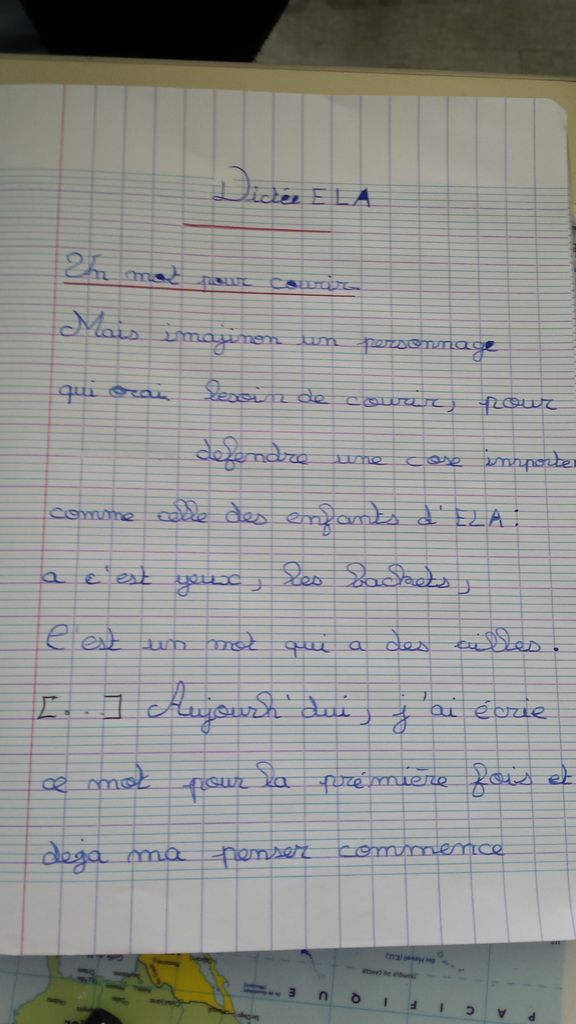 Dictée ELA
Un mot pour courir
Mais imajinon un personnage
qui orai besoin de courir, pour
defendre une cose importe
comme celle des enfants d'ELA :
a c'est yeux, les baskets,
C'est un mot qui a des ailles.
[...] Aujourh'dui, j'ai écrie
ce mot pour la prémière fois et
deja ma penser commence
PACIFIQUE